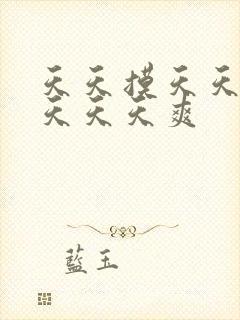 天天摸天天
天天天爽
藍玉